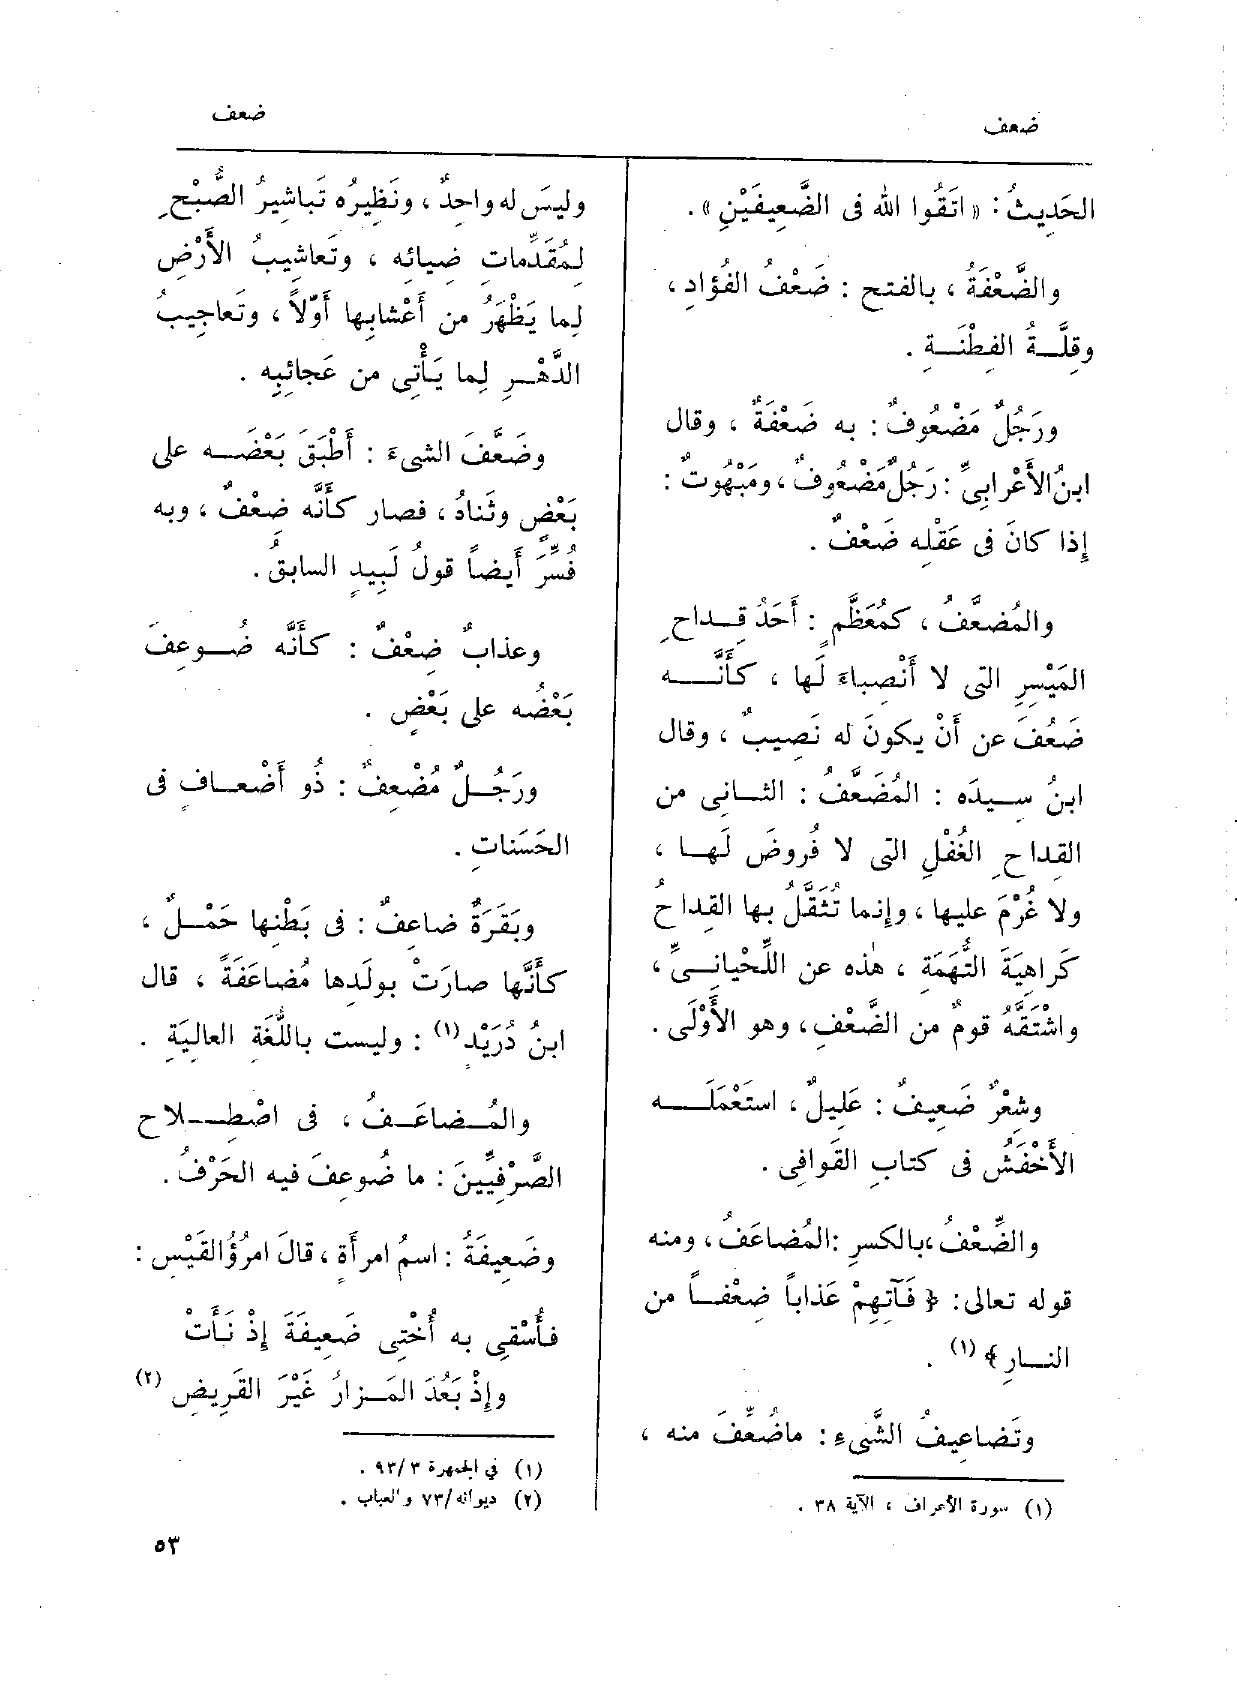 ضعف
ضعف
الحَدِيثُ: «اتَّقُوا الله فى الضَّعِيفَيْنِ».
والضَّعْفَةُ ، بالفتح : ضَعْفُ الفُؤادِ ،
وقِلَّةُ الفِطْنَةِ .
ورَجُلٌ مَضْعُوفٌ : به ضَعْفَةٌ ، وقال
ابنُ الأَعْرابِىِّ : رَجُلٌ مَضْعُوفٌ ، ومَبْهُوتٌ :
إِذا كانَ فى عَقْلِه ضَعْفٌ .
والمُضَعَّفُ ، كمُعَظَّمٍ : أَحَدُ قِداحِ
المَيْسِرِ التى لا أَنْصِباءَ لَها ، كأَنَّه
ضَعُفَ عن أَنْ يكونَ له نَصِيبٌ ، وقال
ابنُ سِيدَه : المُضَعَّفُ : الثانِى من
القِداحِ الغُفْلِ التى لا فُروضَ لَها ،
ولا غُرْمَ عليها ، وإِنما تُثَقَّلُ بها القِداحُ
كَراهِيَةَ التُّهَمَةِ ، هٰذه عن اللِّحْيانِىِّ ،
واشْتَقَّهُ قومٌ من الضَّعْفِ، وهو الأَوْلَى .
وشِعْرٌ ضَعِيفٌ : عَلِيلٌ ، استَعْمَلَه
الأَخْفَشُ فى كتابِ القَوافِى .
والضِّعْفُ ، بالكسرِ : المُضاعَفُ ، ومنه
قوله تعالى: ﴿ فَآتِهِمْ عَذاباً ضِعْفاً من
النارِ﴾ (١) .
وتَضاعِيفُ الشَّىءِ : ماضُعِّفَ منه ،
(١) سورة الأعراف ، الآية ٣٨ .
وليسَ له واحِدٌ ، ونَظِيرُه تَباشِيرُ الصُّبْحِ
لمُقَدِّماتِ ضِيائِه ، وتَعاشِيبُ الأَرْضِ
لِما يَظْهَرُ من أَعْشابِها أَوّلاً ، وتَعاجِيبُ
الدَّهْرِ لِما يَأْتِى من عَجائِبِه .
وضَعَّفَ الشىءَ : أَطْبَقَ بَعْضَه على
بَعْضٍ وثَناهُ ، فصار كأَنَّه ضِعْفٌ ، وبه
فُسِّرَ أَيضاً قولُ لَبِيدٍ السابقُ .
وعذابٌ ضِعْفٌ : كأَنَّه ضُوعِفَ
بَعْضُه على بَعْضٍ .
ورَجُلٌ مُضْعِفٌ : ذُو أَضْعافٍ فى
الحَسَناتِ .
وبَقَرَةٌ ضاعِفٌ : فى بَطْنِها حَمْلٌ ،
كأَنَّها صارَتْ بولَدِها مُضاعَفَةً ، قال
ابنُ دُرَيْدٍ (١) : وليست باللُّغَةِ العالِيَةِ .
والمُضاعَفُ ، فى اصْطِلاحِ
الصَّرْفِيِّينَ : ما ضُوعِفَ فيه الحَرْفُ .
وضَعِيفَةُ : اسمُ امرأَةٍ ، قالَ امرُؤُ القَيْسِ :
فأُسْقِى به أُخْتِى ضَعِيفَةَ إِذْ نَأَتْ
وإِذْ بَعُدَ المَزارُ غَيْرَ القَرِيضِ (٢)
(١) في الجمهرة ٩٣/٣ .
(٢) ديوانه/٧٣ والعباب .
٥٣